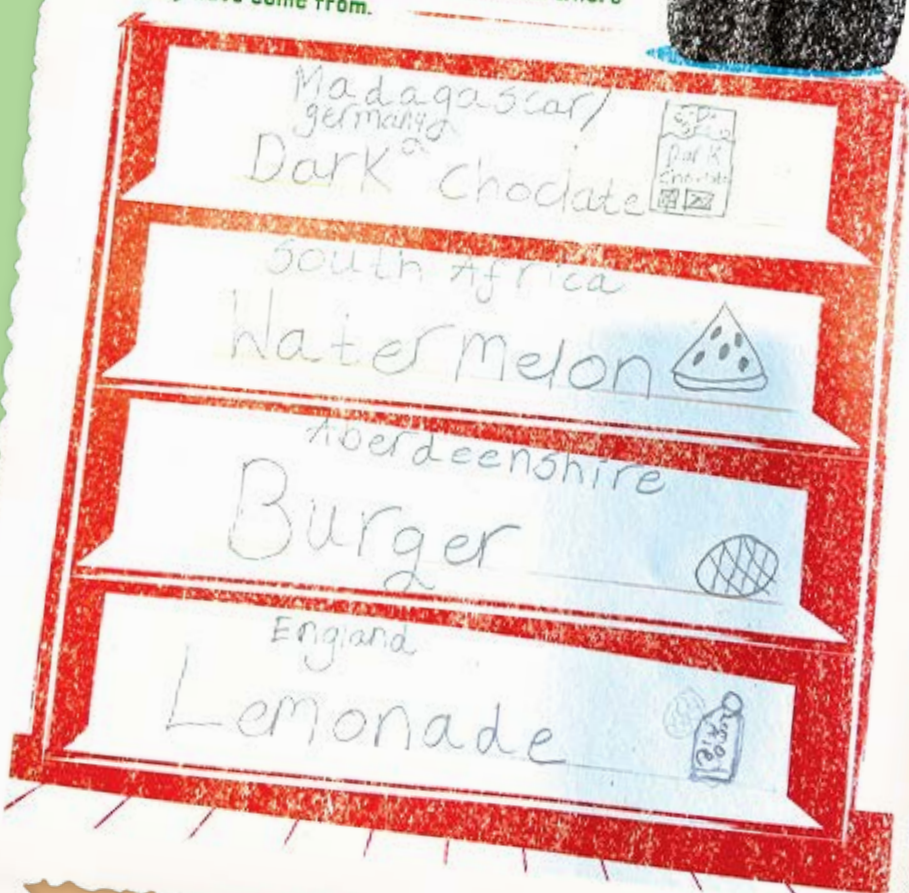 have come from.
Madagascar/
germany
Dark choclate
Dark
South Africa
Water Melon
Aberdeenshire
Burger
England
Lemonade